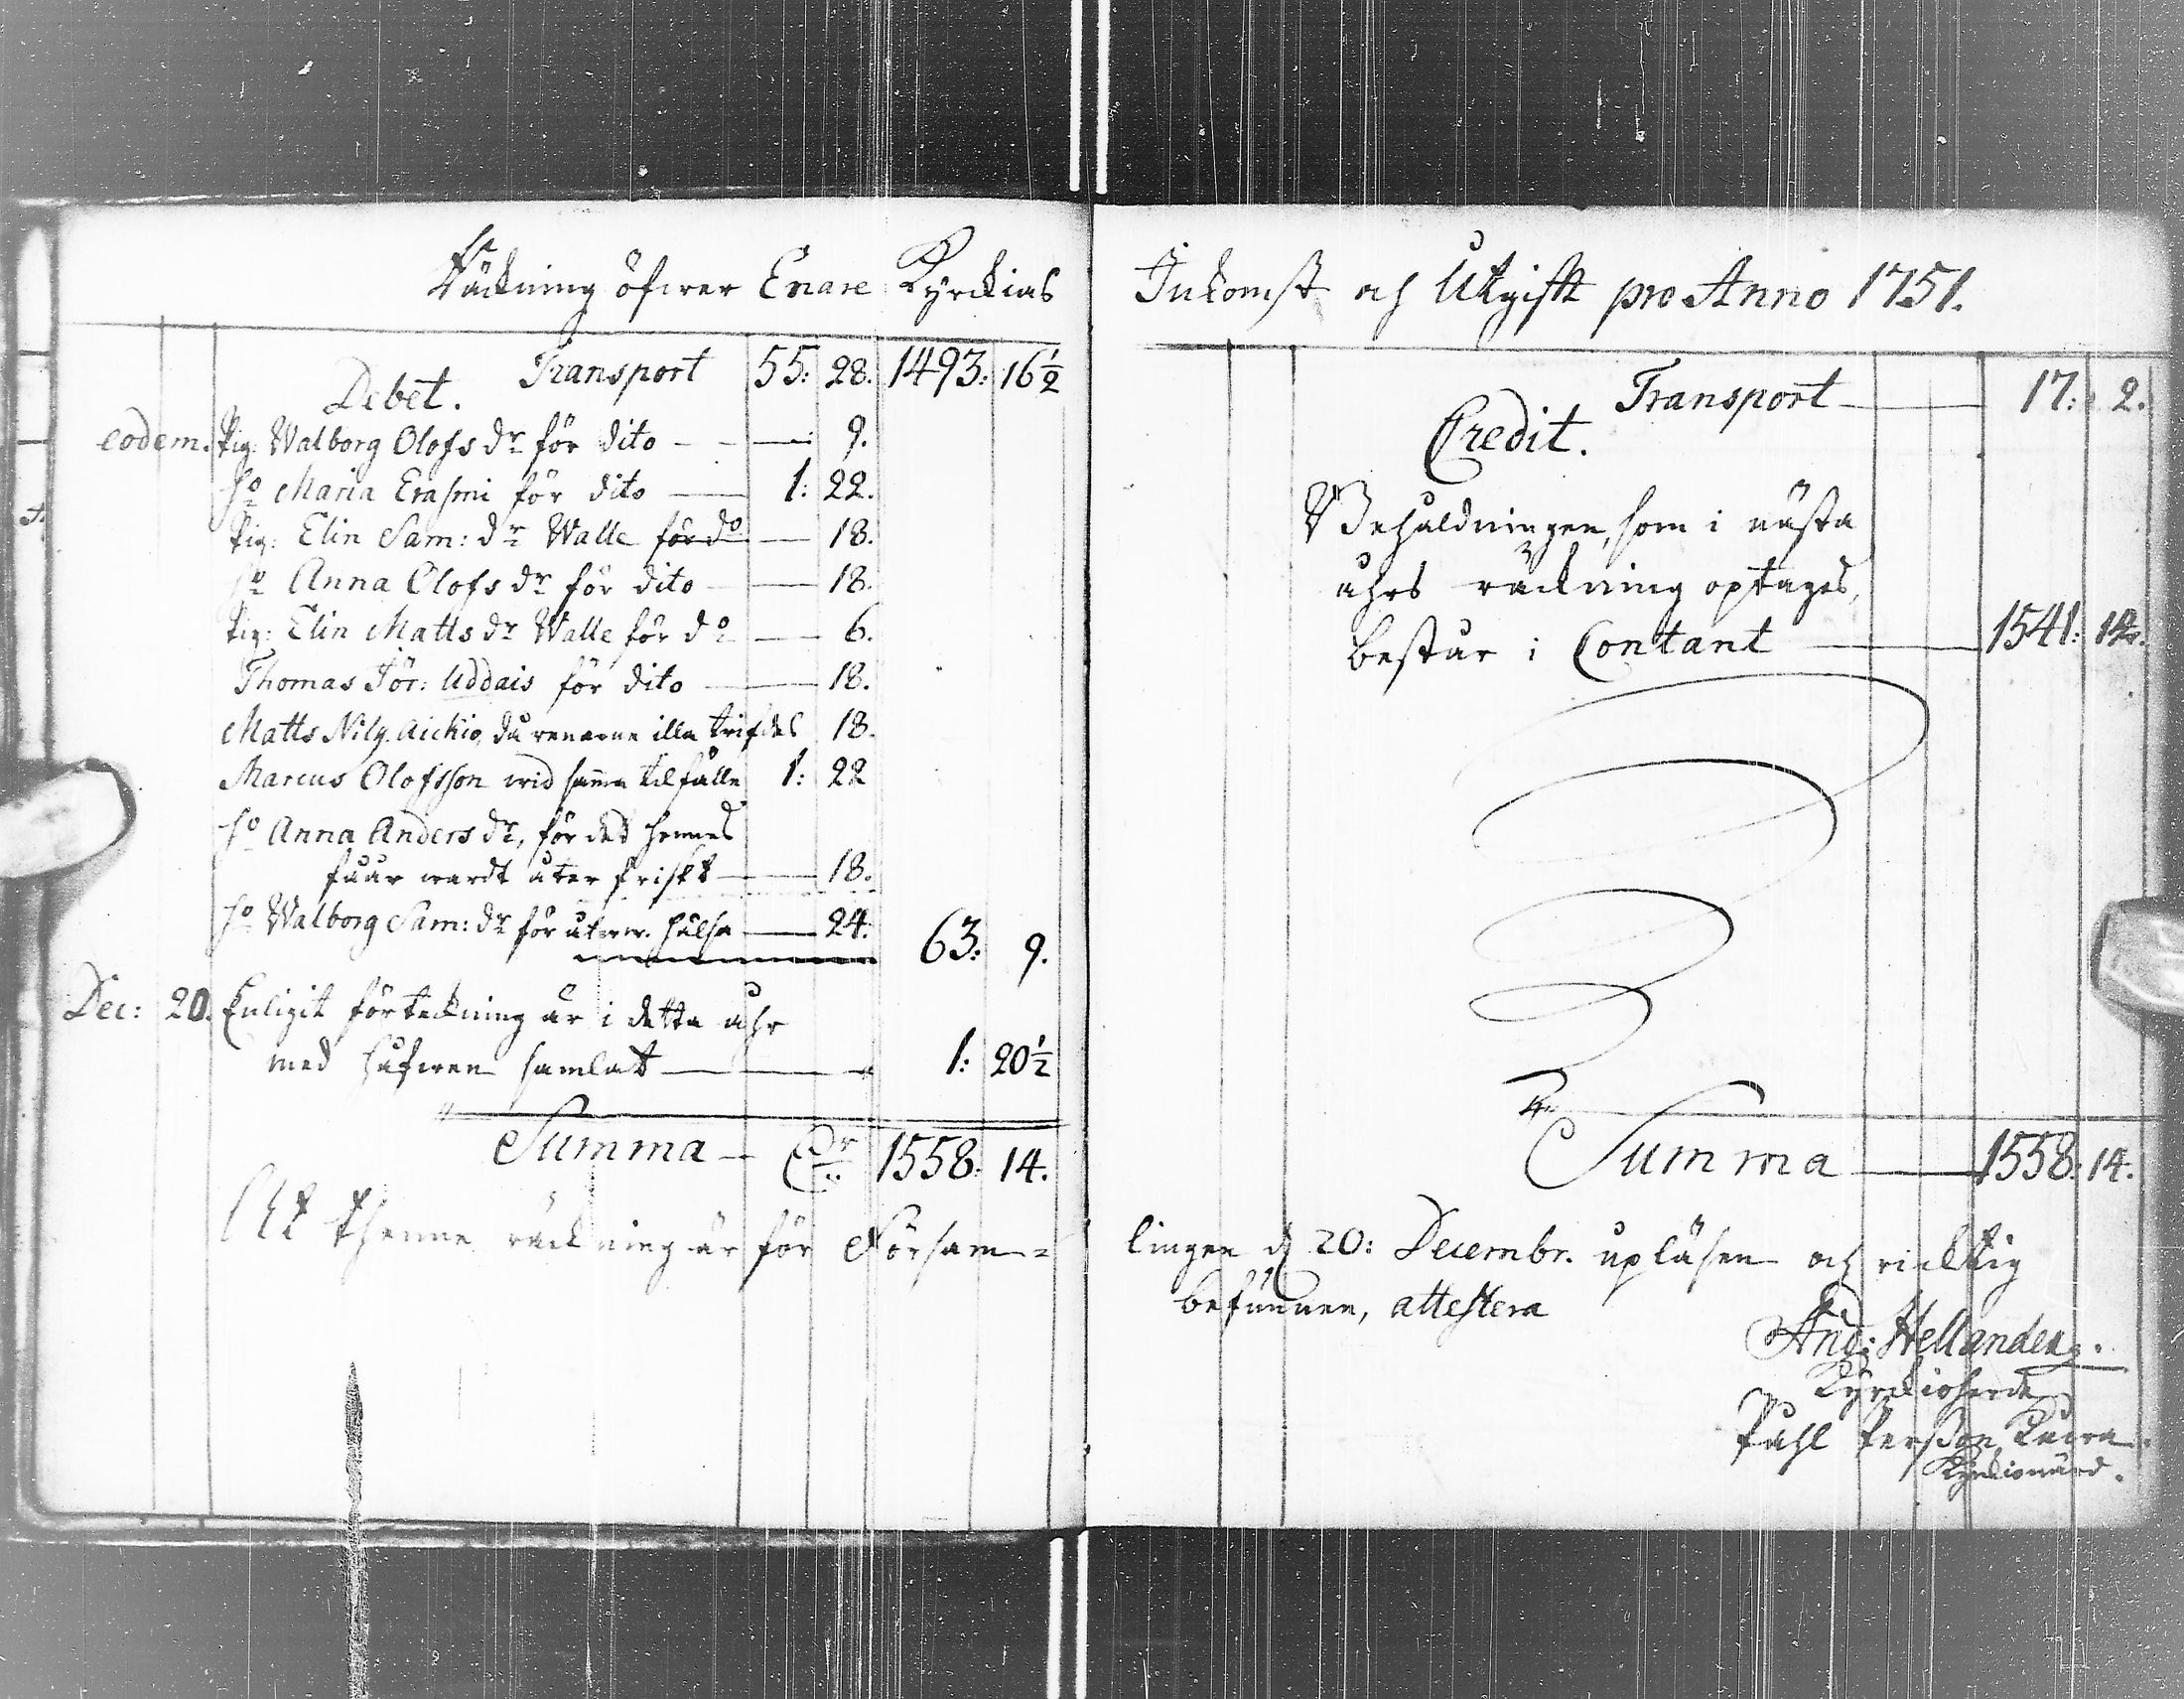 Räckning öfwer Enare Kyrckias
Debet. Transport 55: 28. 1493: 16½
eodem. Pig: Walborg Olofs dr för dito — 9.
ho Maria Erasmi för dito — 1: 22.
Pig: Elin Sam: dr Walle för do — 18.
ho Anna Olofs dr för dito — 18.
Pig: Elin Matts dr Walle för do — 6.
Thomas Jör: Uddais för dito — 18.
Matts Nils. Aickio, då renarne illa trifdes 18.
Marcus Olofsson wid samma tilfälle 1: 22
ho Anna Anders dr, för det hennes
fåår wardt åter friskt — 18.
ho Walborg Sam: dr för återw. hälsa — 24. 63: 9.
Dec: 20. Enligit förteckning är i detta åhr
med håfwen samlat — 1: 20½
Summa — Dr 1558: 14.
At thenne räckning är för Försam=
Inkomst och Utgifft pro Anno 1751.
Transport — 17: 2.
Credit.
Behåldningen, som i nästa
åhrs räckning optages,
består i Contant — 1541: 12.
Summa — 1558: 14.
lingen d 20: Decembr. upläsen och ricktig
befunnen, attestera
And: Hellander.
Kyrckioherde
Påhl Persson Kuwa
Kyrckiowärd.